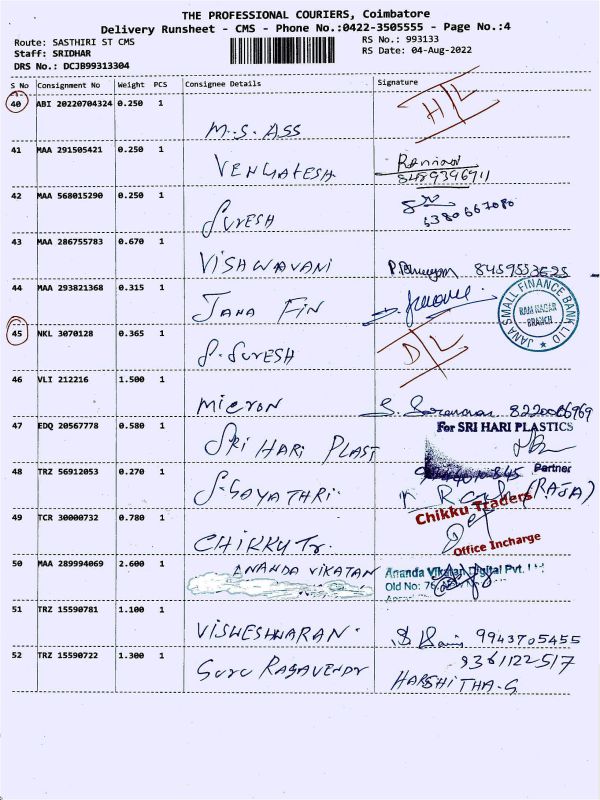 THE PROFESSIONAL COURIERS, Coimbatore
Delivery Runsheet - CMS - Phone No.:0422-3505555 - Page No.:4
Route: SASTHIRI ST CMS
RS No.: 993133
Staff: SRIDHAR
RS Date: 04-Aug-2022
DRS No.: DCJB99313304
S No Consignment No Weight PCS Consignee Details Signature
40 ABI 20220704324 0.250 1 M.S. ASS H/L
41 MAA 291505421 0.250 1 VENGATESH
42 MAA 568015290 0.250 1 SURESH
43 MAA 286755783 0.670 1 VISHWAVANI
44 MAA 293821368 0.315 1 JANA FIN
JANA SMALL FINANCE BANK LTD
RAM NAGAR
BRANCH
45 NKL 3070128 0.365 1 P. SURESH D/L
46 VLI 212216 1.500 1 MICRON
47 EDQ 20567778 0.580 1 SRI HARI PLAST For SRI HARI PLASTICS
Partner
48 TRZ 56912053 0.270 1 S. GAYATHRI. (RAJA)
49 TCR 30000732 0.780 1 CHIKKU Tr. Chikku Traders
Office Incharge
50 MAA 289994069 2.600 1 ANANDA VIKATAN Ananda Vikatan Digital Pvt.
Old No:
51 TRZ 15590781 1.100 1 VISWESHWARAN. 9943705455
52 TRZ 15590722 1.300 1 GURU RAGAVENDR 9361122517
HARSHITHA.G